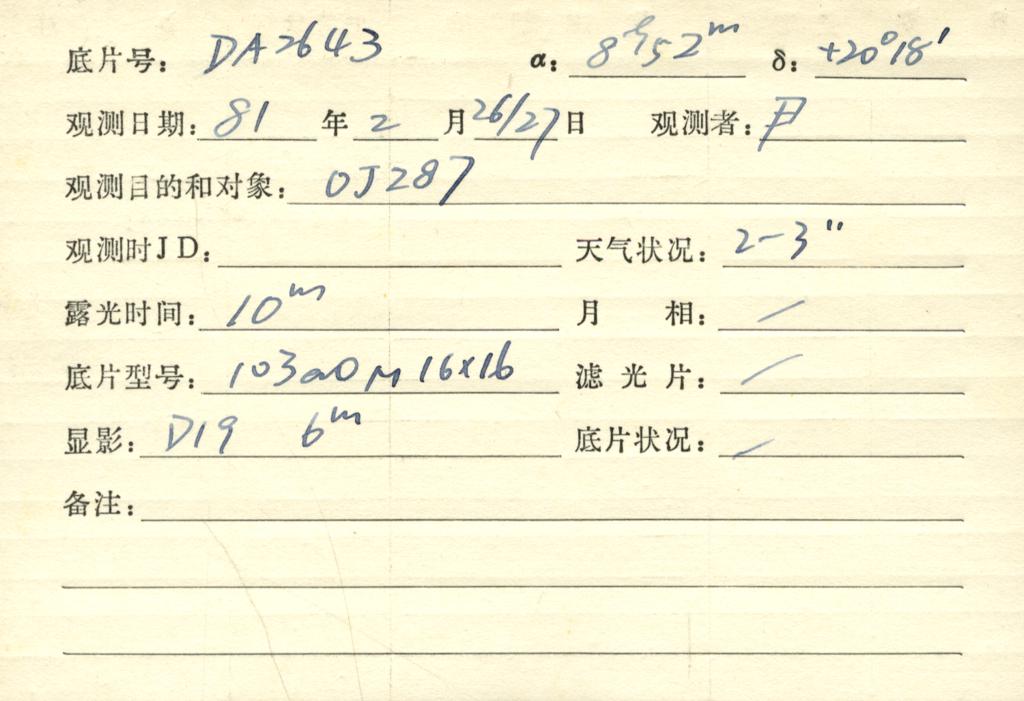 底片号: DA2643 α: 8ʰ52ᵐ δ: +20°18′
观测日期: 81 年 2 月 26/27 日 观测者: 尹
观测目的和对象: OJ287
观测时JD: 天气状况: 2-3"
露光时间: 10ᵐ 月 相: /
底片型号: 103aO M 16×16 滤光片: /
显影: D19 6ᵐ 底片状况: /
备注: